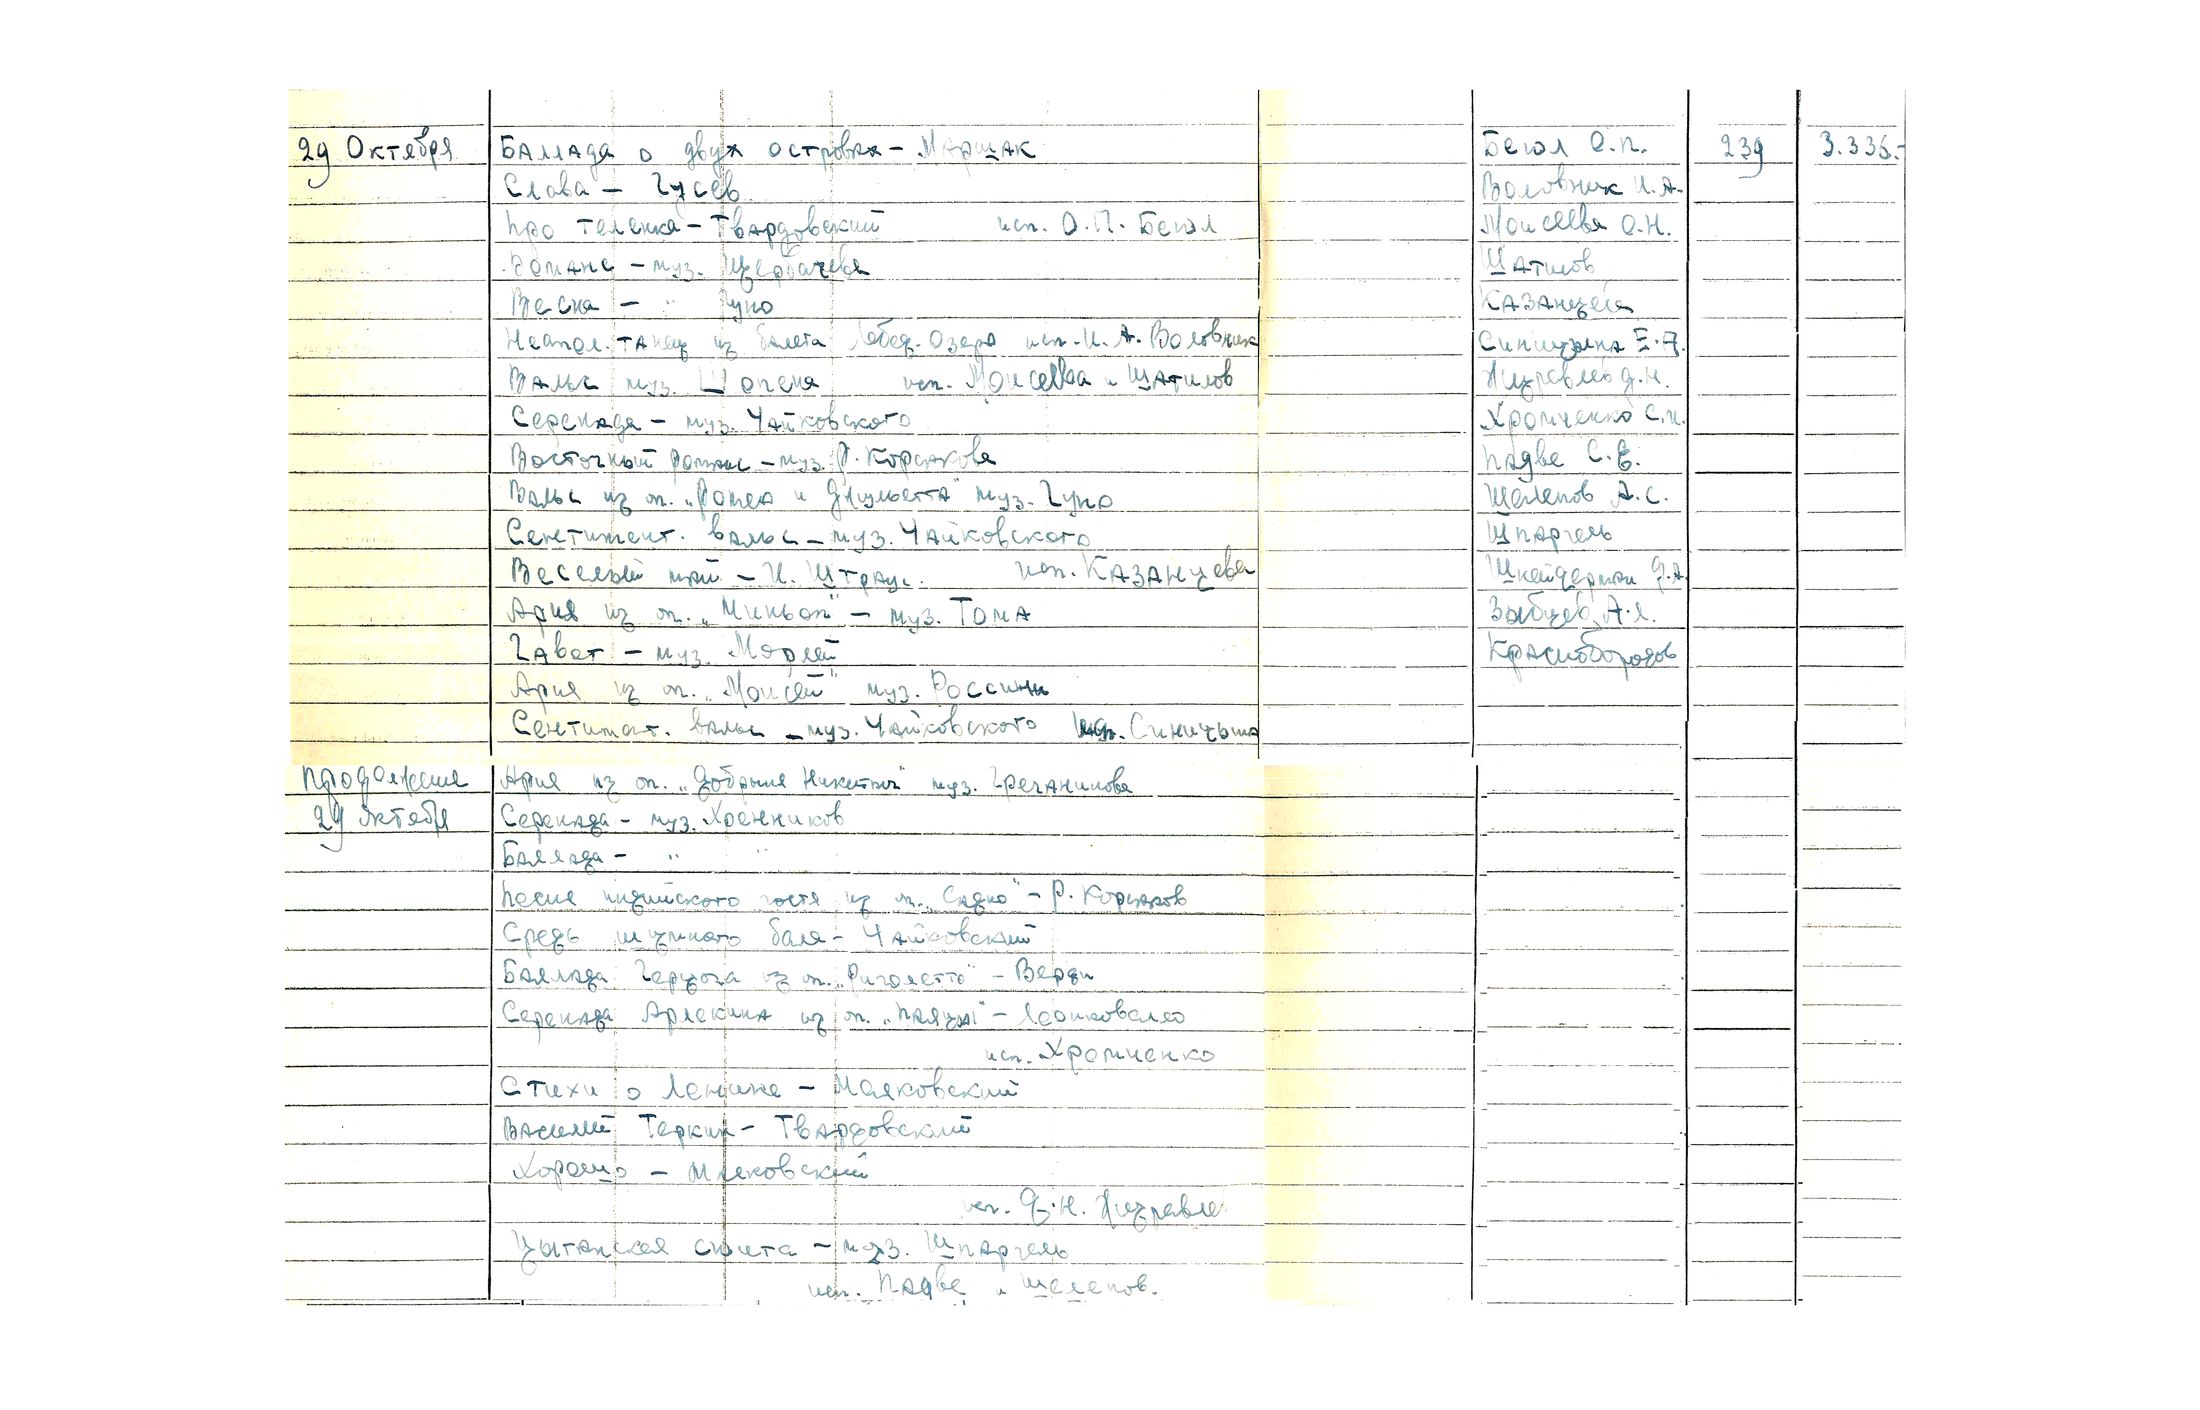 29 Октября Баллада о двух островах - Маршак Бегол О.П. 239 3.335.-
Слова - Гусев Воловник И.А.
Про теленка - Твардовский исп. О.П. Бегол Моисеева О.Н.
Романс - муз. Щербачева Шатилов
Весна - " Гуно Казанцева
Неапол. танец из балета Лебед. Озеро исп. И.А. Воловник Синицына Е.А.
Вальс муз. Шопена исп. Моисеева и Шатилов Журавлев Д.Н.
Серенада - муз. Чайковского Хромченко С.М.
Восточный романс - муз. Р. Корсакова Падве С.Е.
Вальс из оп. „Ромео и Джульетта" муз. Гуно Шелепов А.С.
Сентимент. вальс - муз. Чайковского Шпаргель
Веселый май - И. Штраус. исп. Казанцева Шнейдерман Д.А.
Ария из оп. „Миньон" - муз. Тома Зыбцев А.Я.
Гавот - муз. Морлей Краснобородов
Ария из оп. „Моисей" муз. Россини
Сентимент. вальс - муз. Чайковского исп. Синицына
Продолжение Ария из оп. „Добрыня Никитич" муз. Гречанинова
29 октября Серенада - муз. Хренников
Баллада - " "
Песня индийского гостя из оп. „Садко" - Р. Корсаков
Средь шумного бала - Чайковский
Баллада Герцога из оп. „Риголетто" - Верди
Серенада Арлекина из оп. „Паяцы" - Леонковалло
исп. Хромченко
Стихи о Ленине - Маяковский
Василий Теркин - Твардовский
Хорошо - Маяковский
исп. Д.Н. Журавлев
Цыганская сюита - муз. Шпаргель
исп. Падве и Шелепов.